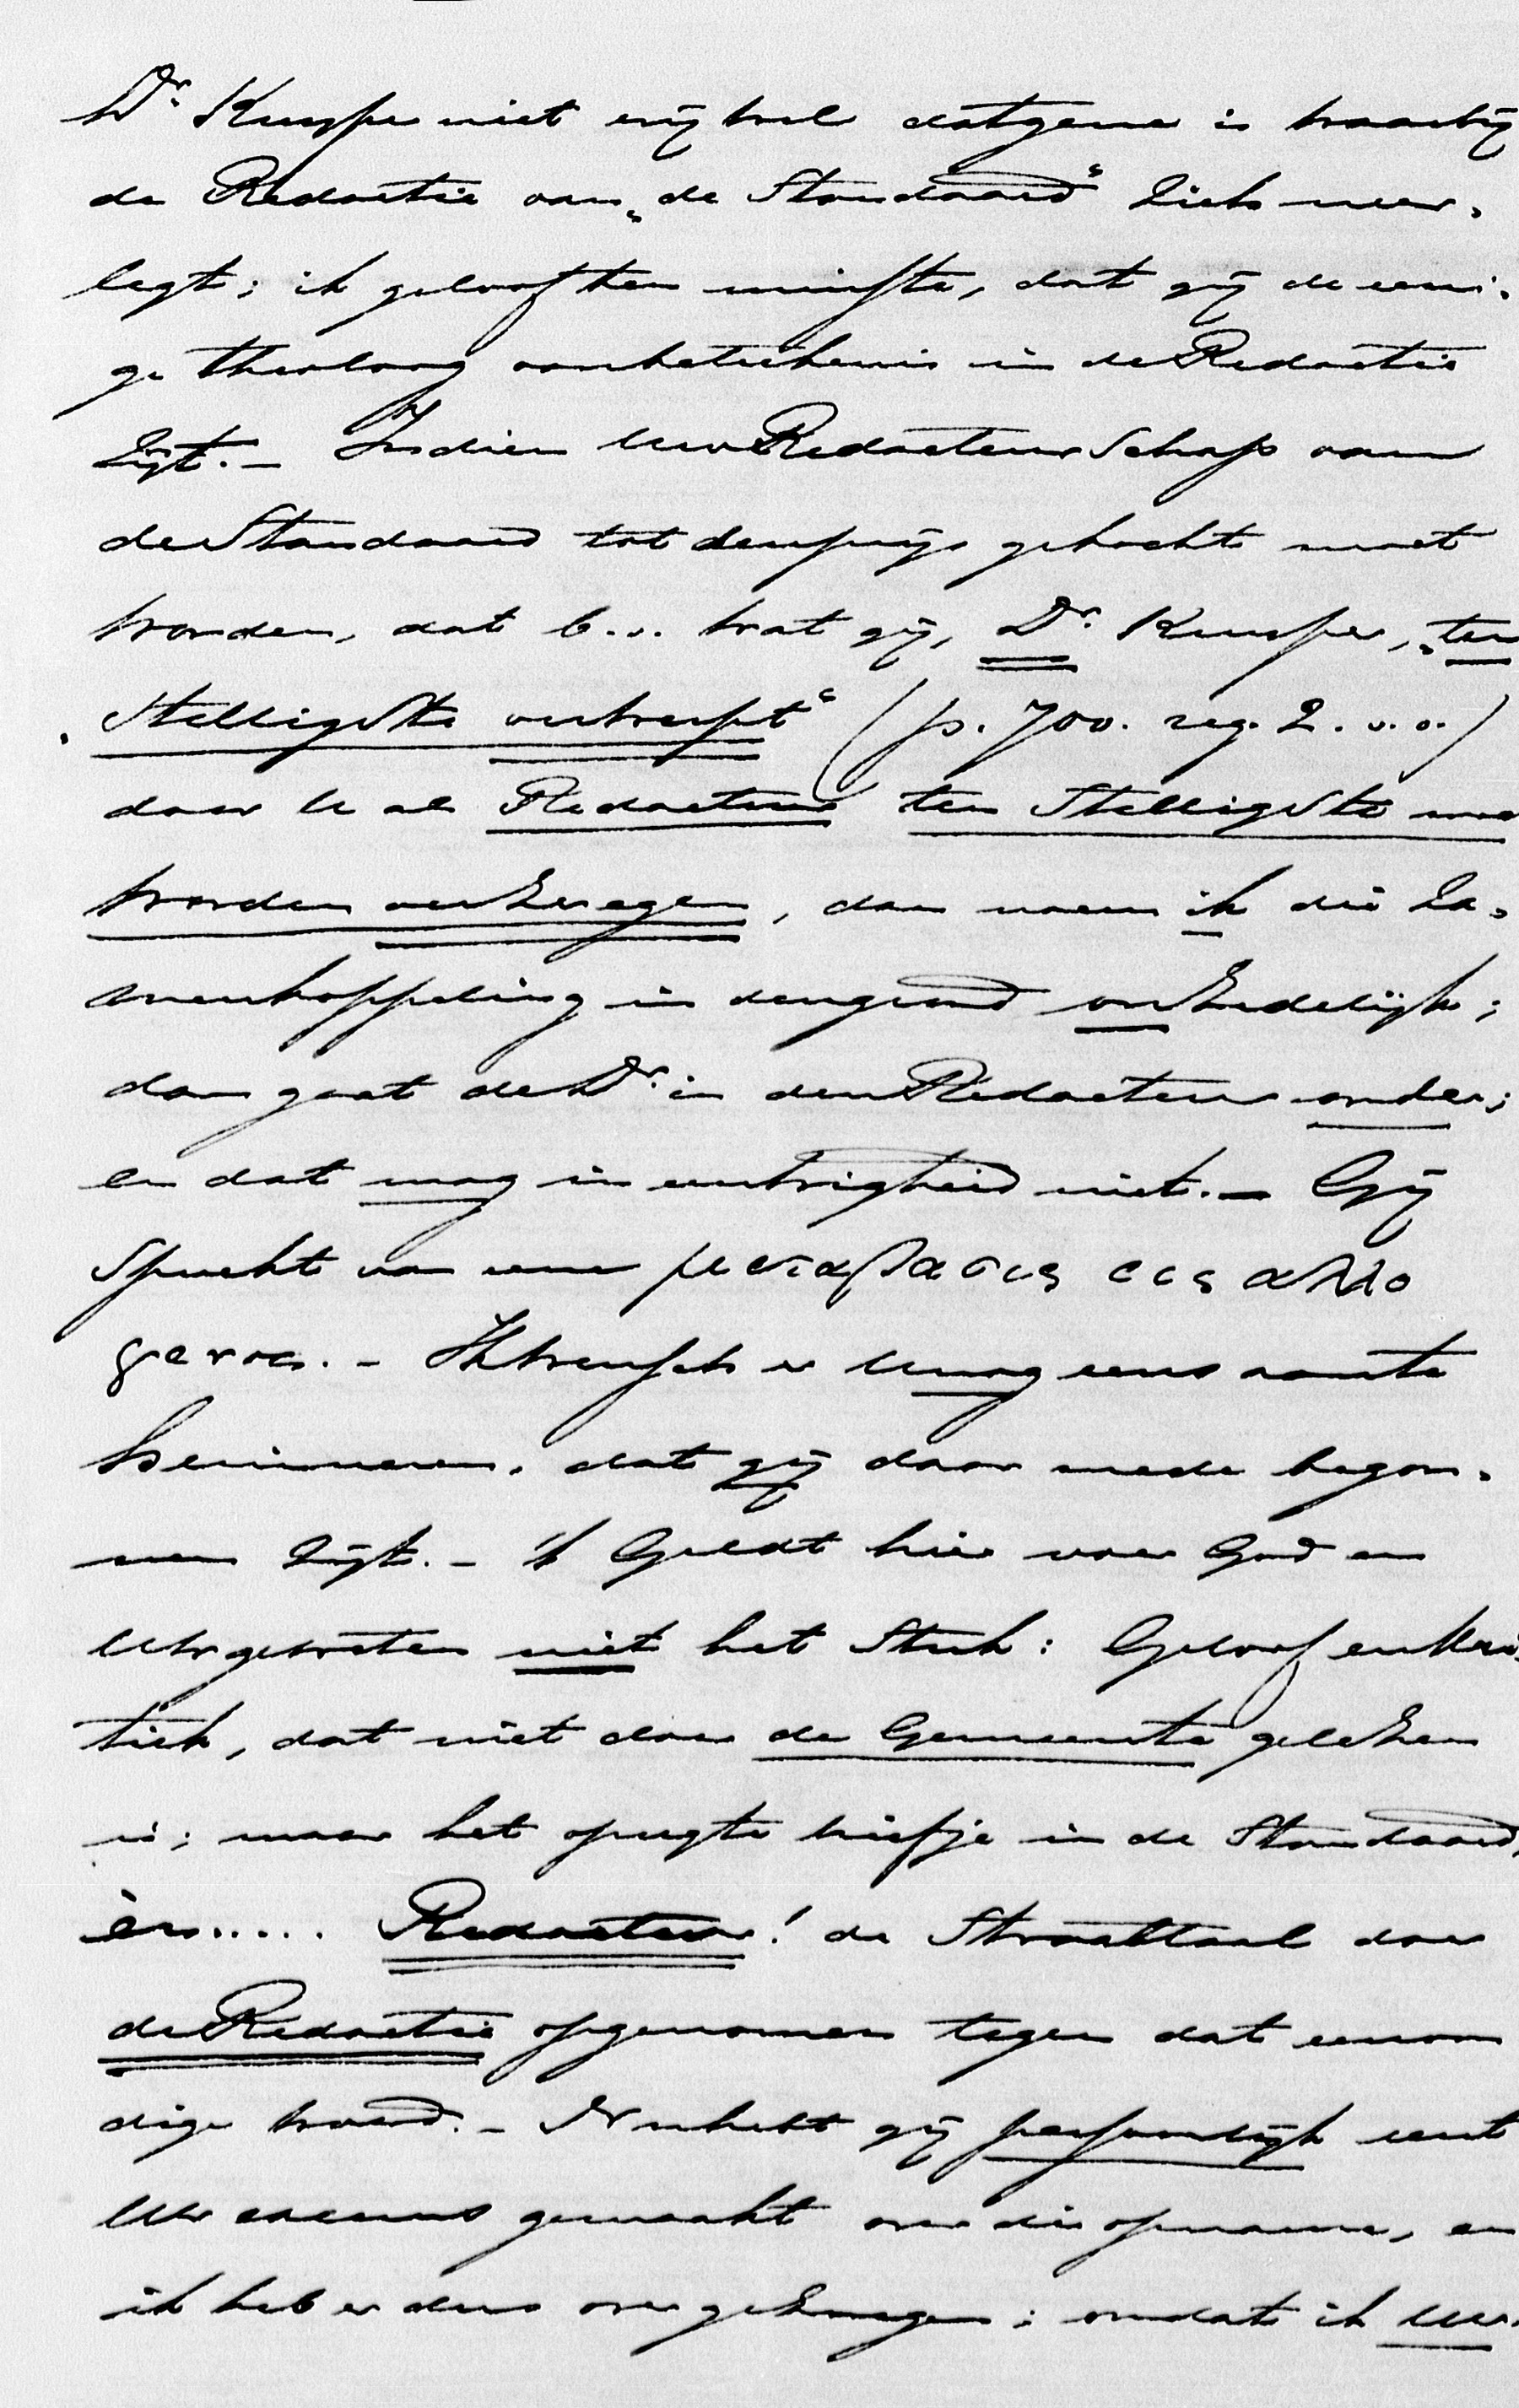 Dr. Kuyper niet vrij wel datgene is waarbij
de Redactie van „de Standaard" zich neer-
legt; ik geloof ten minste, dat gij de eeni-
ge theoloog van beteekenis in de Redactie
zijt. — Indien Uw Redacteurschap van
de Standaard tot den prijs gekocht moet
worden, dat b.v. wat gij, Dr. Kuyper, „ten
„stelligste verwerpt" (p. 700. reg. 2. v. o.)
door U als Redacteur ten stelligste moet
worden verzwegen, dan noem ik die za-
menkoppeling in den grond onzedelijk;
dan gaat de Dr. in den Redacteur onder;
en dat mag in eeuwigheid niet. — Gij
spreekt van eene μεταβασις εις αλλο
γενος. — Ik wensch er U nog eens aan te
herinneren, dat gij daar mede begon-
nen zijt. — 'k Geldt hier voor God en
Uw geweten niet het Stuk: Geloof en Kri-
tiek, dat niet door de Gemeente gelezen
is; maar het opregte briefje in de Standaard,
èn..... Redacteur! de Straattaal door
de Redactie opgenomen tegen dat eenvou
dige woord. — Nu hebt gij persoonlijk eerst
Uw excuus gemaakt over die opname, en
ik heb er dus over gezwegen; omdat ik Uw